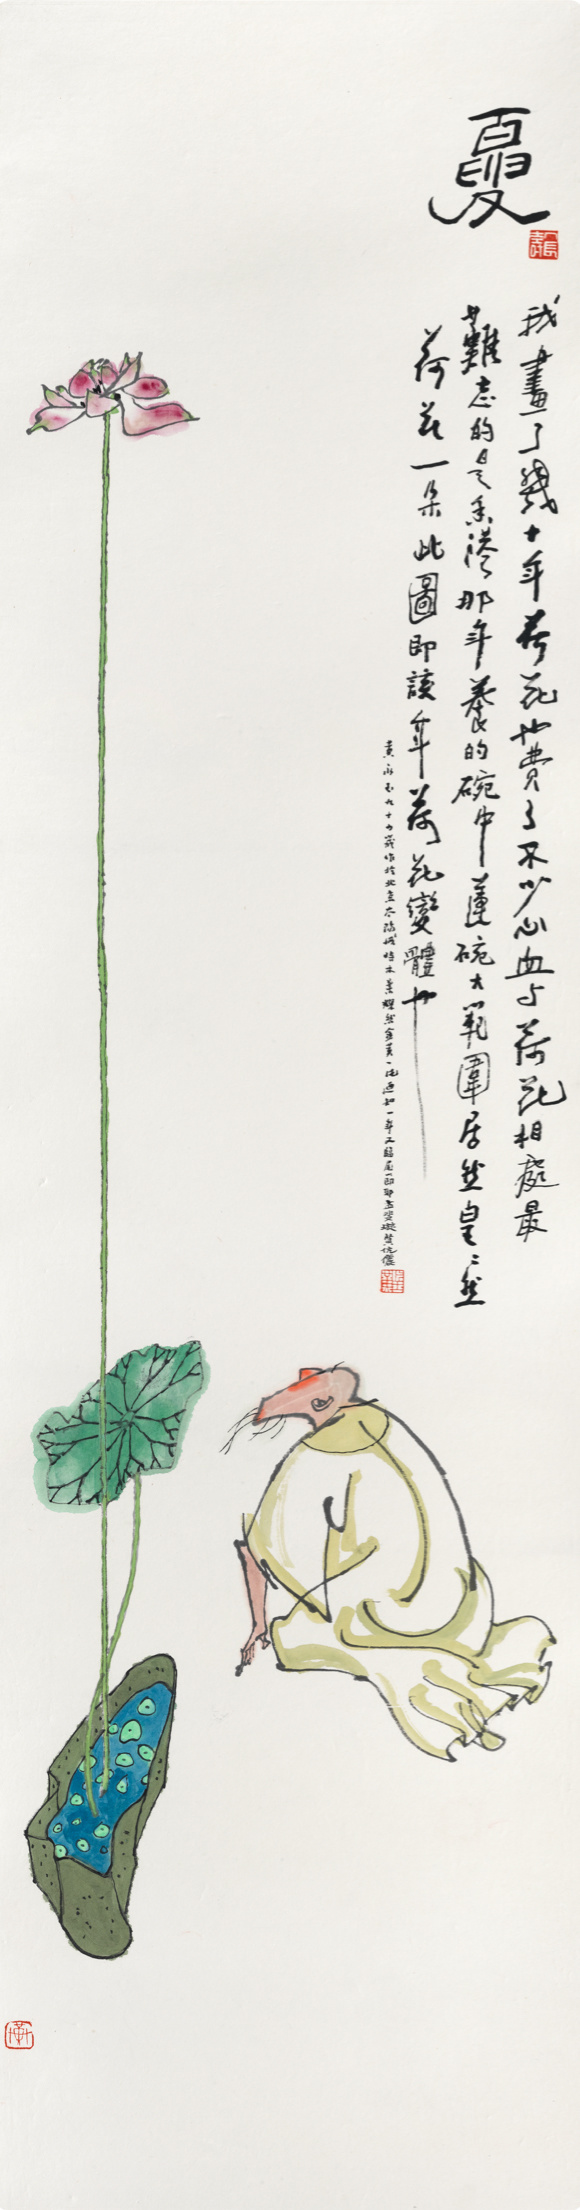 夏
我畫了幾十年荷花也費了不少心血与荷花相處最
難忘的是香港那年養的碗中蓮碗大範圍居然皇皇然
荷花一朵此圖即該年荷花變體也
黃永玉九十六歲作於北京太陽城